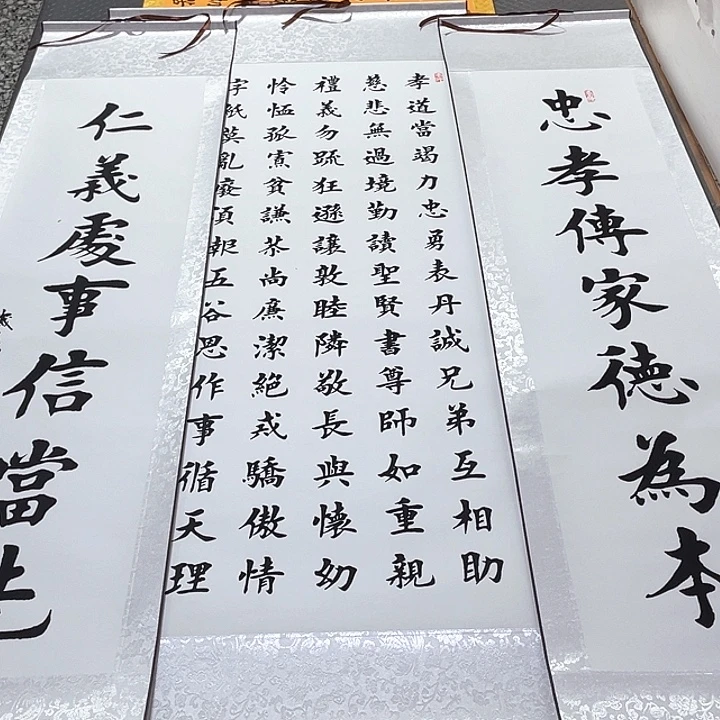 忠孝傳家徳為本
孝道當竭力忠勇表丹誠兄弟互相助
慈悲無過境勤讀聖賢書尊師如重親
禮義勿疏狂遜讓敦睦隣敬長與懷幼
怜恤孤寡貧謙恭尚廉潔絕戒驕傲情
字紙莫亂廢須報五谷恩作事循天理
仁義處事信當先